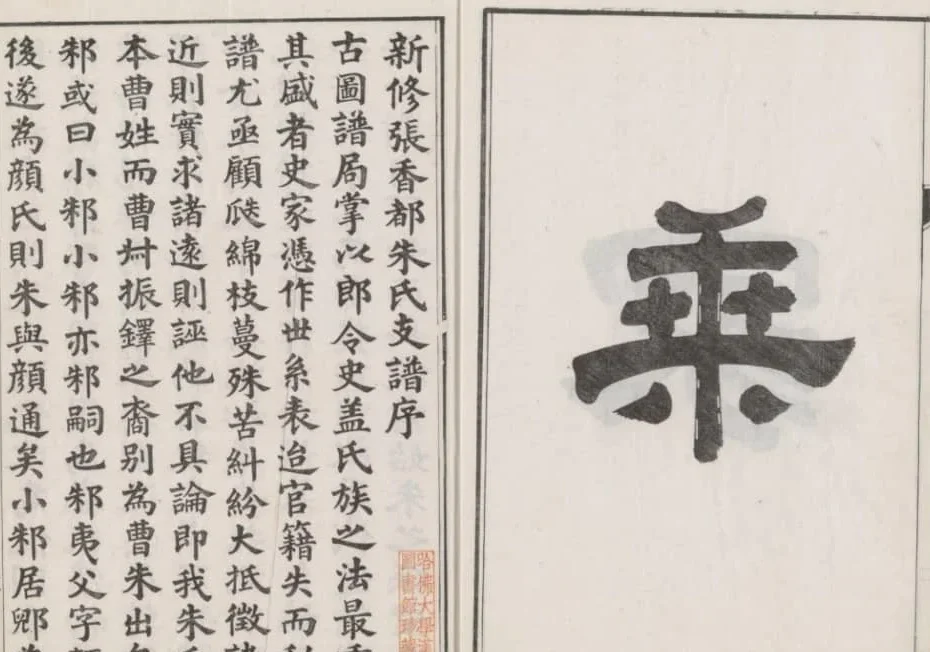 乘
新修張香都朱氏支譜序
古圖譜局掌以郎令史盖氏族之法最
其盛者史家憑作世系表迨官籍失而
譜尤亟顧瓞綿枝蔓殊苦糾紛大抵徵
近則實求諸遠則誣他不具論即我朱
本曹姓而曹叔振鐸之裔别為曹朱出
邾或曰小邾小邾亦邾嗣也邾夷父字
後遂為顏氏則朱與顏通矣小邾居郳
哈佛大學漢
圖書館珍